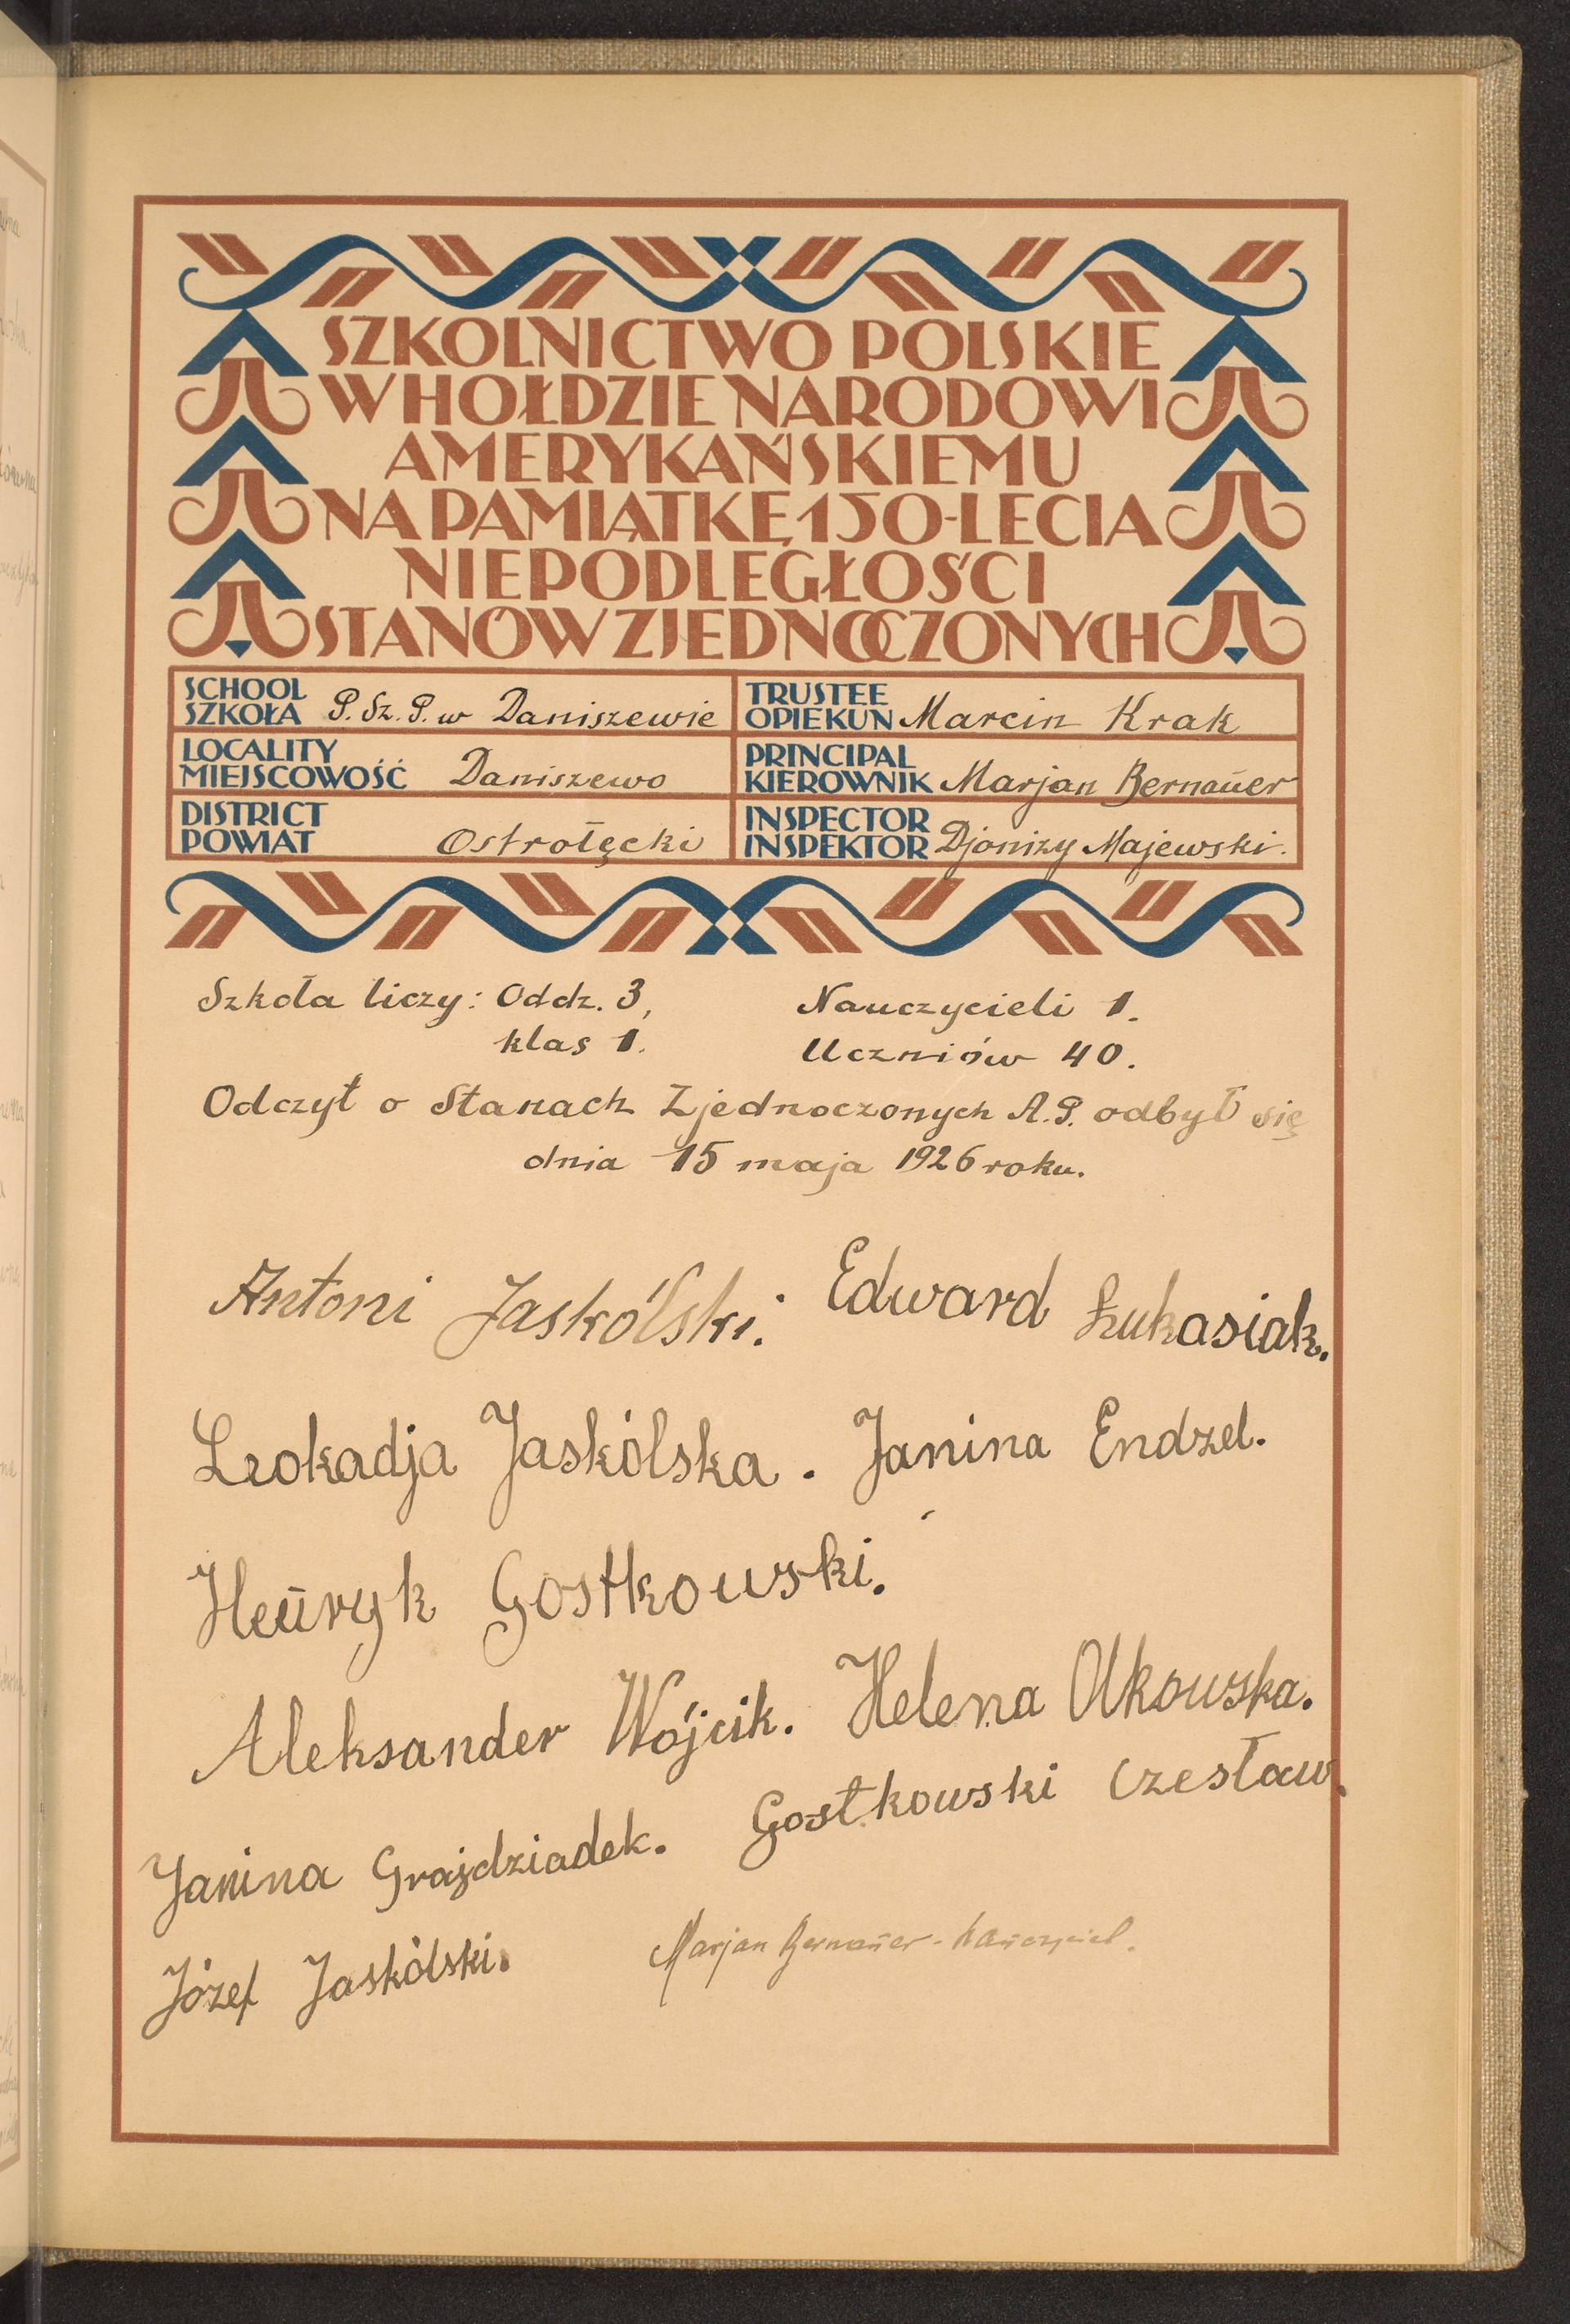 SZKOLNICTWO POLSKIE
W HOŁDZIE NARODOWI
AMERYKAŃSKIEMU
NA PAMIĄTKĘ 150-LECIA
NIEPODLEGŁOŚCI
STANÓW ZJEDNOCZONYCH
SCHOOL
SZKOŁA P. Sz. P. w Daniszewie
TRUSTEE
OPIEKUN Marcin Krak
LOCALITY
MIEJSCOWOŚĆ Daniszewo
PRINCIPAL
KIEROWNIK Marjan Bernaŭer
DISTRICT
POWIAT Ostrołęcki
INSPECTOR
INSPEKTOR Djonizy Majewski.
Szkoła liczy: Oddz. 3, Nauczycieli 1.
klas 1. Uczniów 40.
Odczyt o Stanach Zjednoczonych A.P. odbył się
dnia 15 maja 1926 roku.
Antoni Jaskólski. Edward Łukasiak.
Leokadja Jaskólska. Janina Endzel.
Henryk Gostkowski.
Aleksander Wójcik. Helena Olkowska.
Janina Grajdziadek. Gostkowski Czesław.
Józef Jaskólski. Marjan Bernaŭer - naŭczyciel.